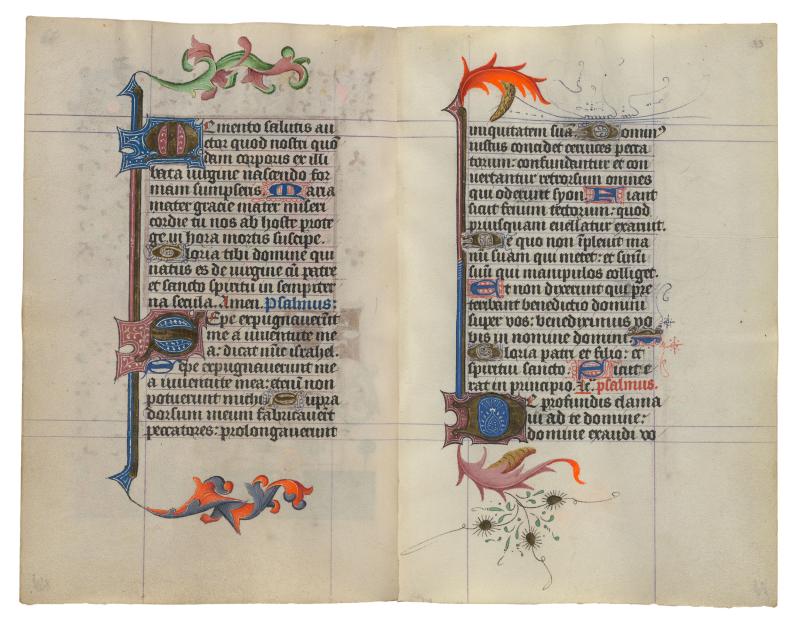 Memento salutis au
ctor quod nostri quõ
dam corporis ex illi
bata uirgine nascendo for
mam sumpseris. Maria
mater gracie mater miseri
cordie tu nos ab hoste prote
ge in hora mortis suscipe.
Gloria tibi domine qui
natus es de uirgine cũ patre
et sancto spiritu in sempiter
na secula. Amen. Psalmus:
Sepe expugnauerũt
me a iuuentute me
a: dicat nũc israhel.
Sepe expugnauerunt me
a iuuentute mea: etenĩ non
potuerunt michi. Supra
dorsum meum fabricauerũt
peccatores: prolongauerunt
33
iniquitatem suã. Dominꝰ
iustus concidet ceruices pecca
torum: confundantur et con
uertantur retrorsum omnes
qui oderunt syon. Fiant
sicut fenum tectorum: quod
priusquam euellatur exaruit.
De quo non ĩpleuit ma
nũ suam qui metet: et sinũ
suũ qui manipulos colliget.
Et non dixerunt qui pre
teribant benedictio domini
super vos: benediximus vo
bis in nomine domini.
Gloria patri et filio: et
spiritui sancto. Sicut e
rat in principio. Psalmus.
De profundis clama
ui ad te domine:
domine exaudi vo